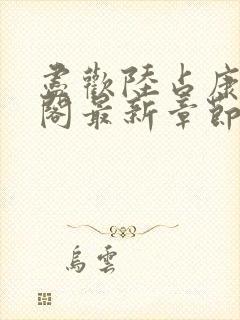 尽歡陸占康
閣最新章節
烏雲